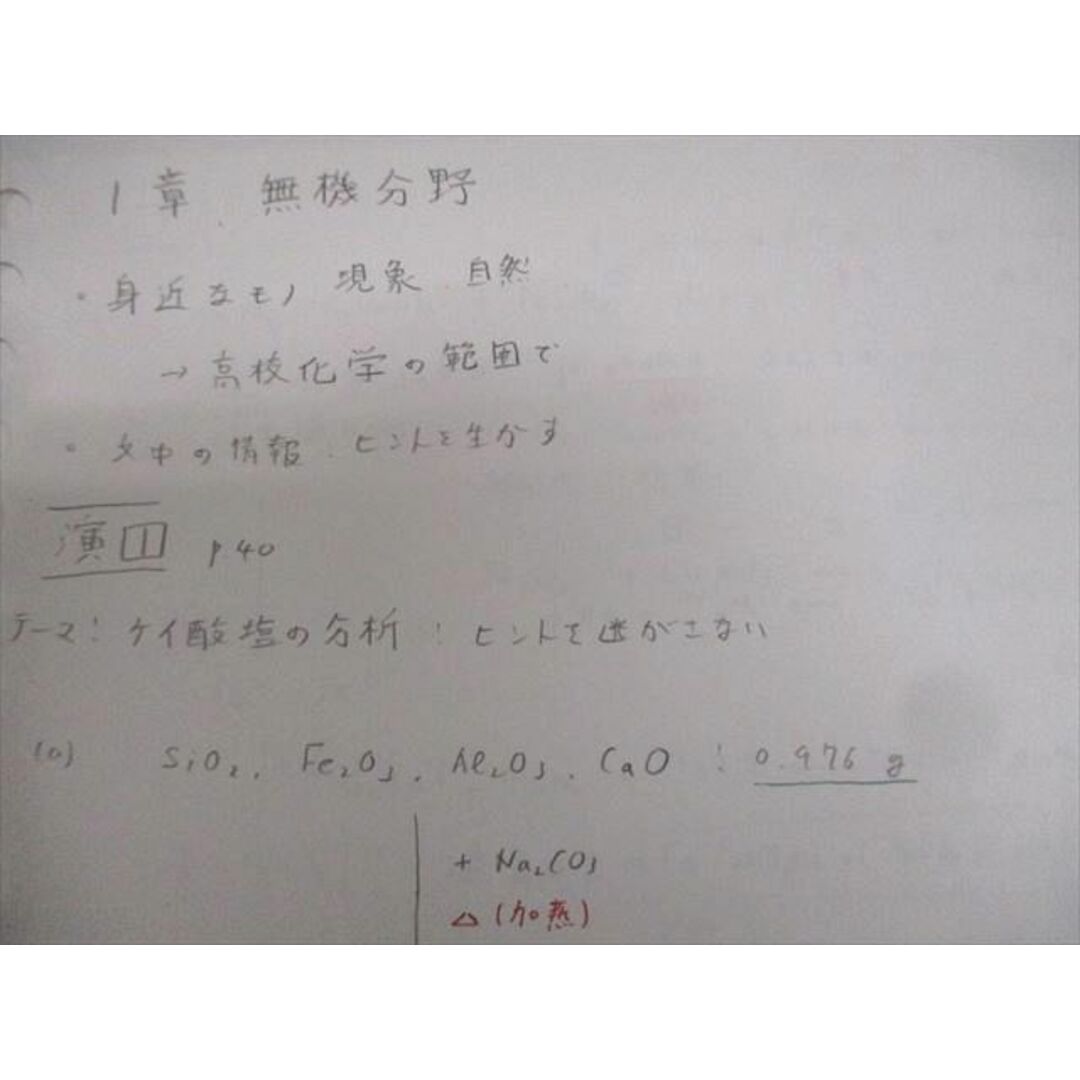 1章 無機分野
・身近なモノ 現象 自然
→高校化学の範囲で
・文中の情報・ヒントを生かす
演1 p.40
テーマ:ケイ酸塩の分析:ヒントを逃がさない
(a) SiO₂, Fe₂O₃, Al₂O₃, CaO : 0.976 g
+ Na₂CO₃
△(加熱)